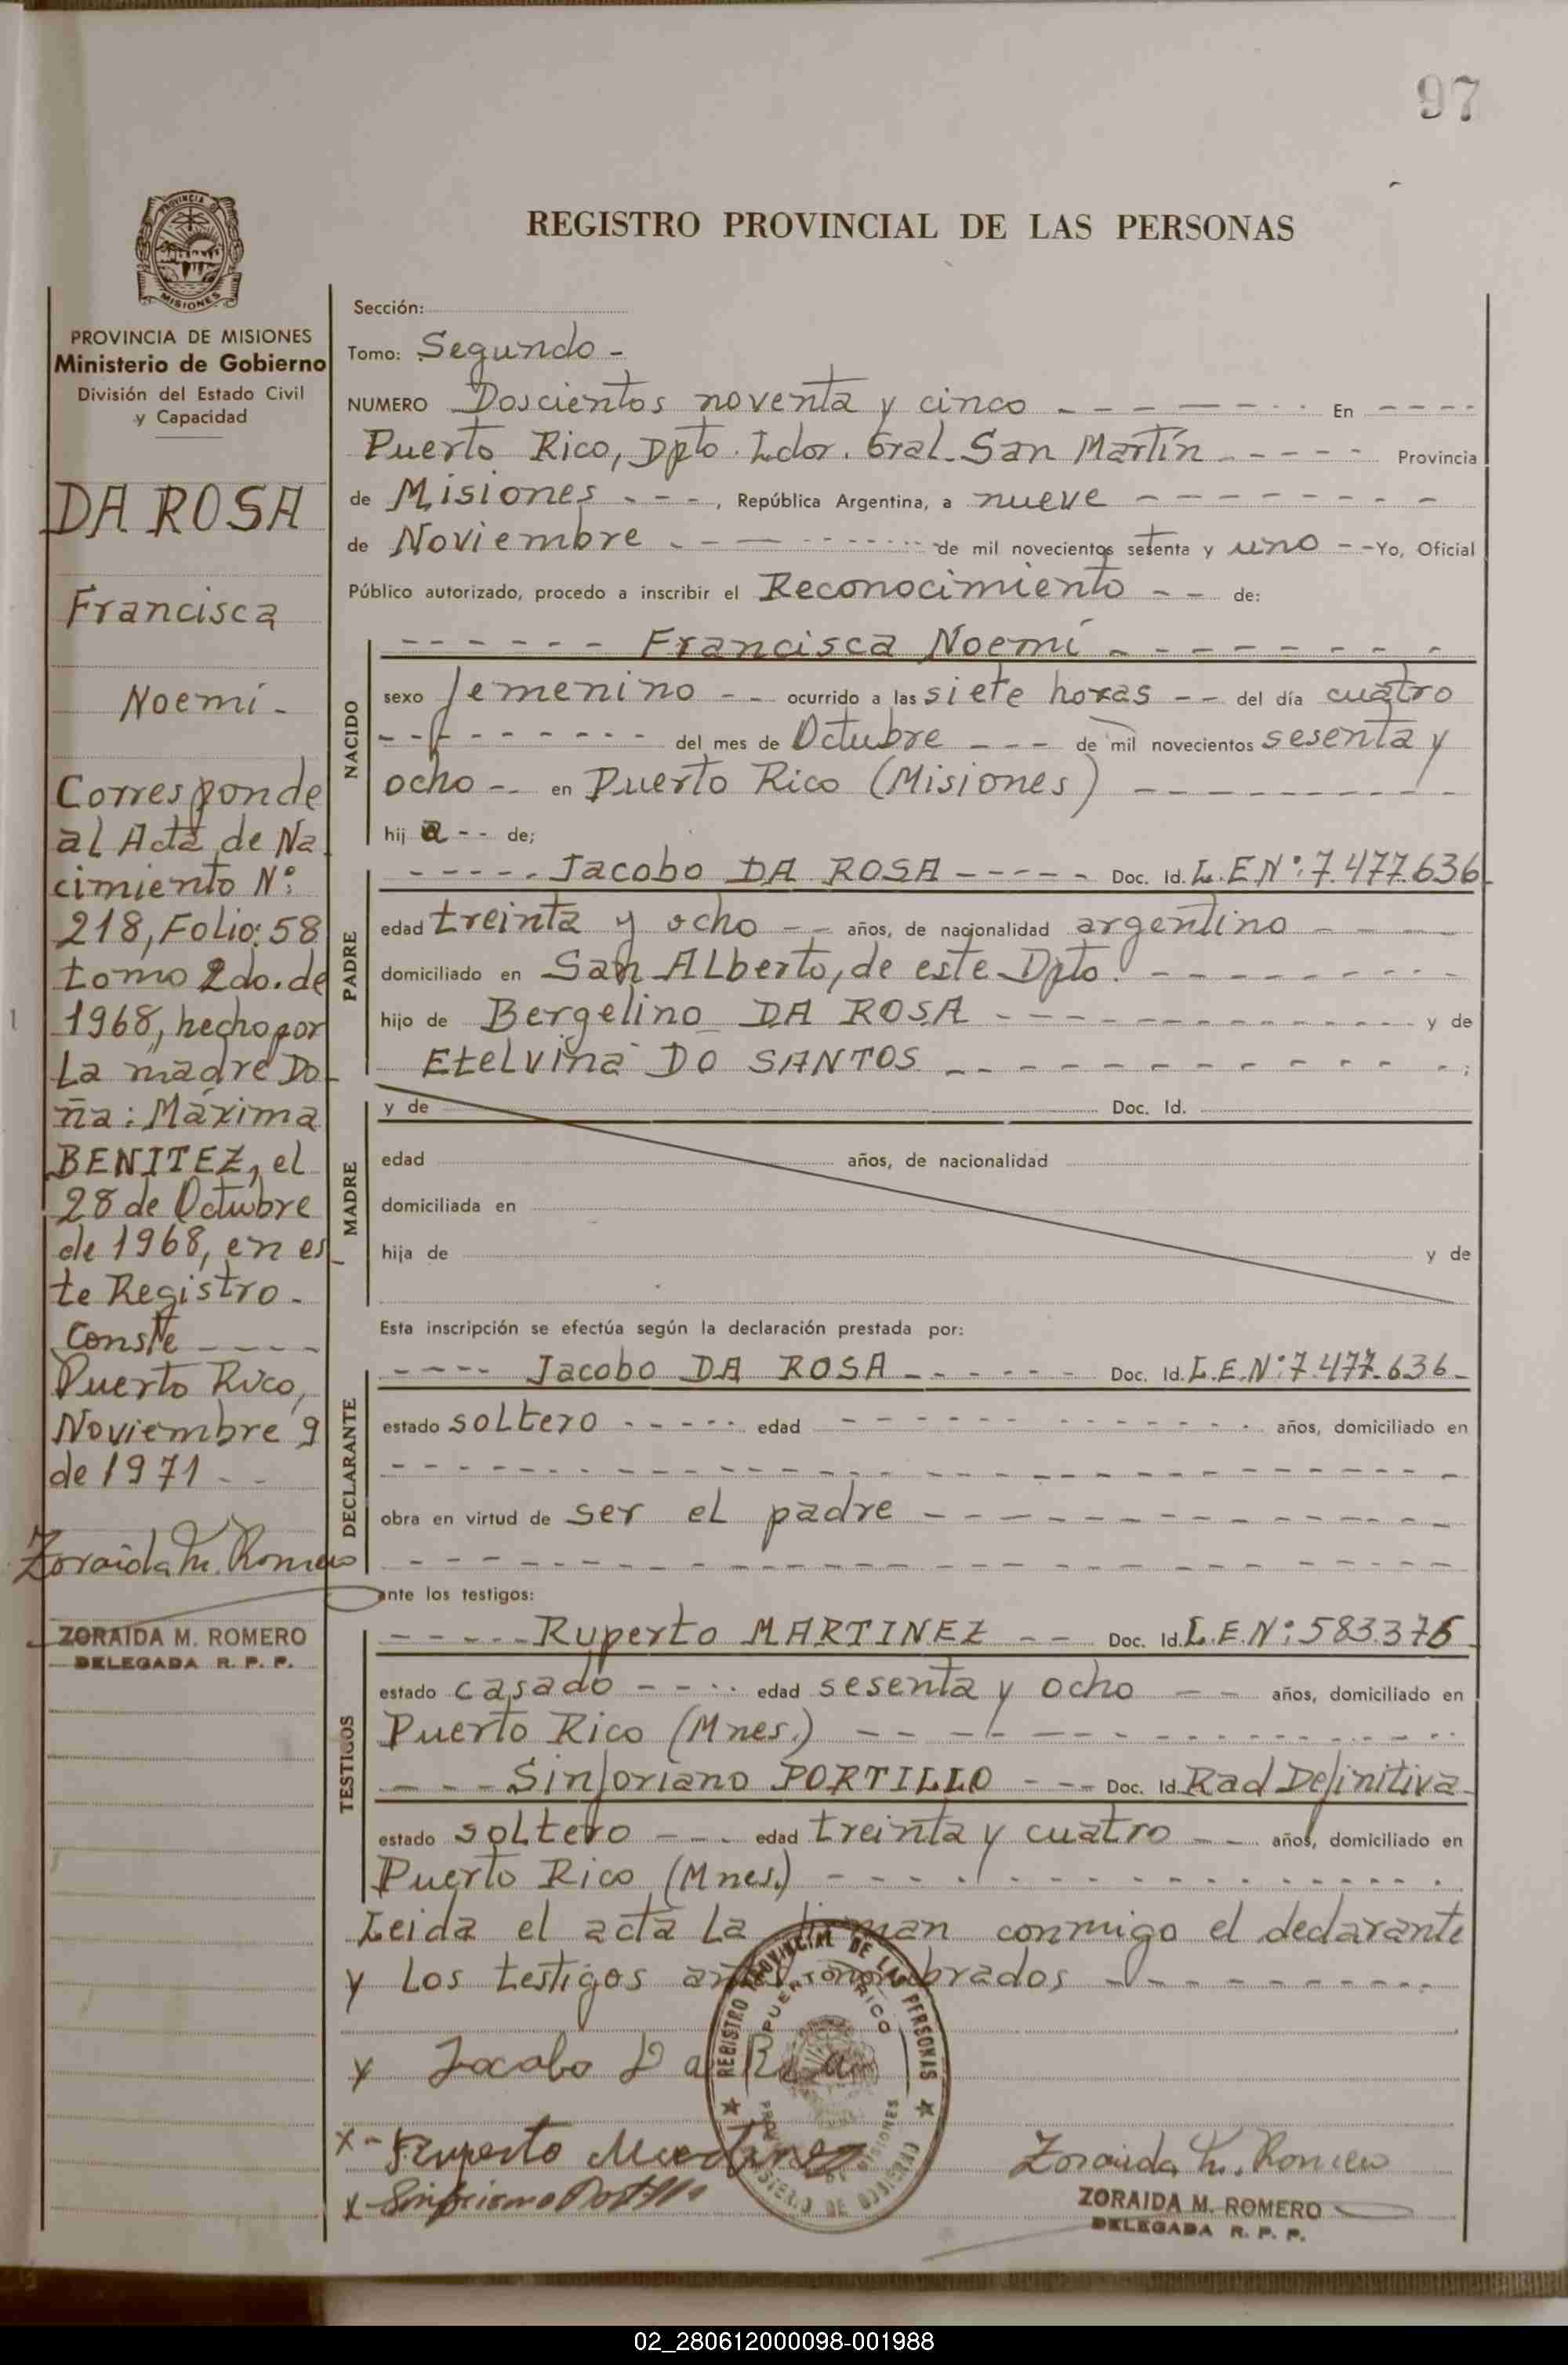 97
PROVINCIA DE
MISIONES
REGISTRO PROVINCIAL DE LAS PERSONAS
PROVINCIA DE MISIONES
Ministerio de Gobierno
División del Estado Civil
y Capacidad
DA ROSA
Francisca
Noemí -
Corresponde
al Acta de Na
cimiento Nº:
218, Folio: 58
tomo 2do. de
1968, hecho por
La madre Do
ña: Máxima
BENITEZ, el
28 de Octubre
de 1968, en es
te Registro -
Conste ----
Puerto Rico,
Noviembre 9
de 1971 --
Zoraida M. Romero
ZORAIDA M. ROMERO
DELEGADA R. P. P.
Sección:
Tomo: Segundo -
NUMERO Doscientos noventa y cinco - - - - - - En - - - -
Puerto Rico, Dpto. Ldor. Gral. San Martín - - - - - Provincia
de Misiones - - -, República Argentina, a nueve - - - - - - - -
de Noviembre - - - - - - - de mil novecientos setenta y uno - - Yo, Oficial
Público autorizado, procedo a inscribir el Reconocimiento - - de:
NACIDO
- - - - - - Francisca Noemí - - - - - - - -
sexo femenino - - ocurrido a las siete horas - - del día cuatro
- - - - - - - - - del mes de Octubre - - - de mil novecientos sesenta y
ocho - - en Puerto Rico (Misiones) - - - - - - - -
hij a - - de;
PADRE
- - - - - Jacobo DA ROSA - - - - - Doc. Id. L.E.Nº: 7.477.636
edad treinta y ocho - - años, de nacionalidad argentino - - - -
domiciliado en San ALberto, de este Dpto. - - - - - - - -
hijo de Bergelino DA ROSA - - - - - - - - - - y de
EteLvina DO SANTOS - - - - - - - - - - ;
MADRE
y de Doc. Id.
edad años, de nacionalidad
domiciliada en
hija de y de
Esta inscripción se efectúa según la declaración prestada por:
DECLARANTE
- - - - Jacobo DA ROSA - - - - - Doc. Id. L.E.Nº: 7.477.636 -
estado soltero - - - - - edad - - - - - - - - - - - años, domiciliado en
- - - - - - - - - - - - - - - - - - - -
obra en virtud de ser el padre - - - - - - - - - - -
- - - - - - - - - - - - - - - - - - - -
ante los testigos:
TESTIGOS
- - - - - Ruperto MARTINEZ - - Doc. Id. L.E.Nº: 583.376
estado casado - - - - edad sesenta y ocho - - años, domiciliado en
Puerto Rico (Mnes.) - - - - - - - - - - - -
- - - Sinforiano PORTILLO - - - Doc. Id. Rad Definitiva
estado soltero - - - edad treinta y cuatro - - años, domiciliado en
Puerto Rico (Mnes.) - - - - - - - - - - - -
Leida el acta La firman conmigo el declarante
y Los testigos antes nombrados - - - - - - - - -
x Jacobo Da Rosa
x - Ruperto Martinez
x - Sinforiano Portillo
REGISTRO PROVINCIAL DE LAS PERSONAS
PUERTO RICO
MINISTERIO DE GOBIERNO
Zoraida M. Romero
ZORAIDA M. ROMERO
DELEGADA R. P. P.
02_280612000098-001988